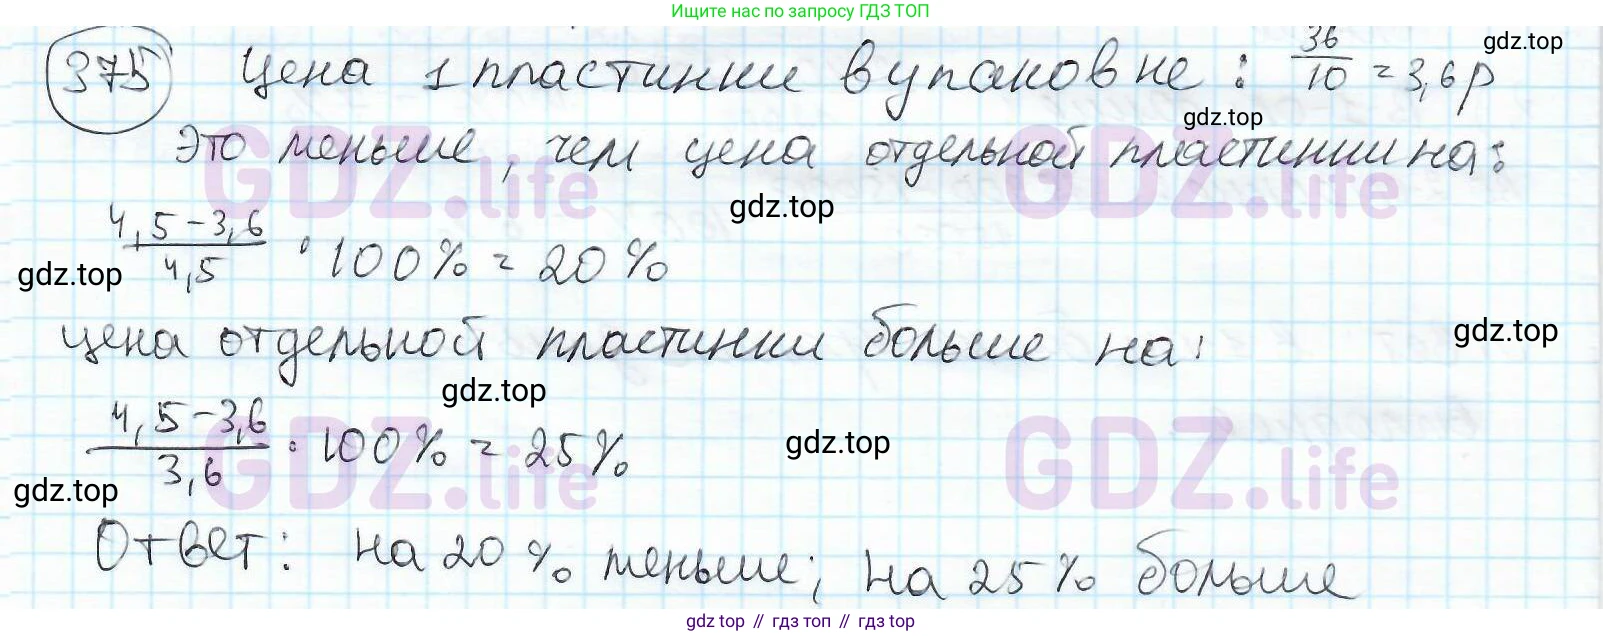 Ищите нас по запросу ГДЗ ТОП
375 Цена 1 пластинки в упаковке: 36/10 = 3,6 р
gdz.top
gdz.top
Это меньше, чем цена отдельной пластинки на:
GDZ.life
GDZ.life
gdz.top
(4,5-3,6)/4,5 · 100% = 20%
gdz.top
цена отдельной пластинки больше на:
gdz.top
gdz.top
(4,5-3,6)/3,6 · 100% = 25%
GDZ.life
GDZ.life
gdz.top
gdz.top
Ответ: на 20% меньше; на 25% больше
gdz.top // гдз топ // gdz.top